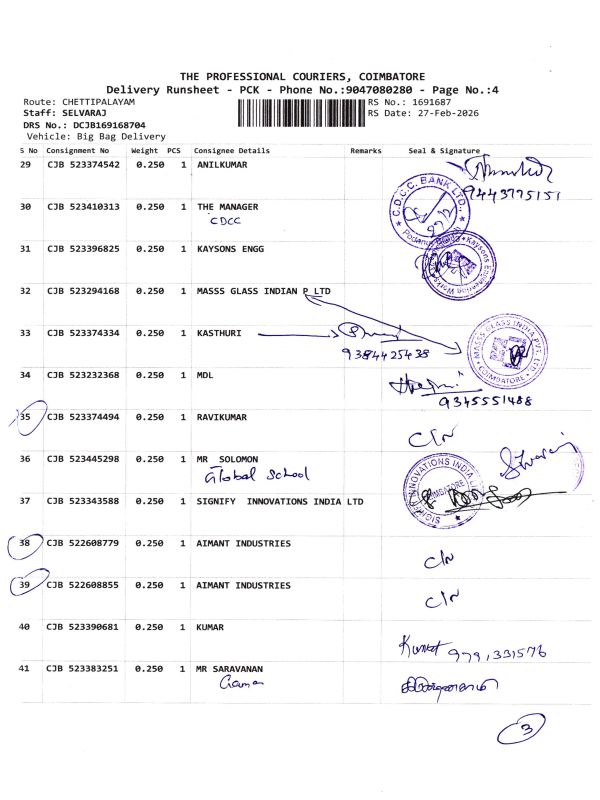 THE PROFESSIONAL COURIERS, COIMBATORE
Delivery Runsheet - PCK - Phone No.:9047080280 - Page No.:4
Route: CHETTIPALAYAM RS No.: 1691687
Staff: SELVARAJ RS Date: 27-Feb-2026
DRS No.: DCJB169168704
Vehicle: Big Bag Delivery
S No Consignment No Weight PCS Consignee Details Remarks Seal & Signature
29 CJB 523374542 0.250 1 ANILKUMAR
9443775151
C.D.C.C. BANK LTD.,
30 CJB 523410313 0.250 1 THE MANAGER
CDCC
31 CJB 523396825 0.250 1 KAYSONS ENGG
Kaysons Engineering Works
32 CJB 523294168 0.250 1 MASSS GLASS INDIAN P LTD
33 CJB 523374334 0.250 1 KASTHURI
9384425438
MASSS GLASS INDIA PVT. LTD. COIMBATORE
34 CJB 523232368 0.250 1 MDL
9345551488
35 CJB 523374494 0.250 1 RAVIKUMAR
C/N
36 CJB 523445298 0.250 1 MR SOLOMON
Global School
SIGNIFY INNOVATIONS INDIA
COIMBATORE
37 CJB 523343588 0.250 1 SIGNIFY INNOVATIONS INDIA LTD
38 CJB 522608779 0.250 1 AIMANT INDUSTRIES
C/N
39 CJB 522608855 0.250 1 AIMANT INDUSTRIES
C/N
40 CJB 523390681 0.250 1 KUMAR
Kumar 9791331576
41 CJB 523383251 0.250 1 MR SARAVANAN
3